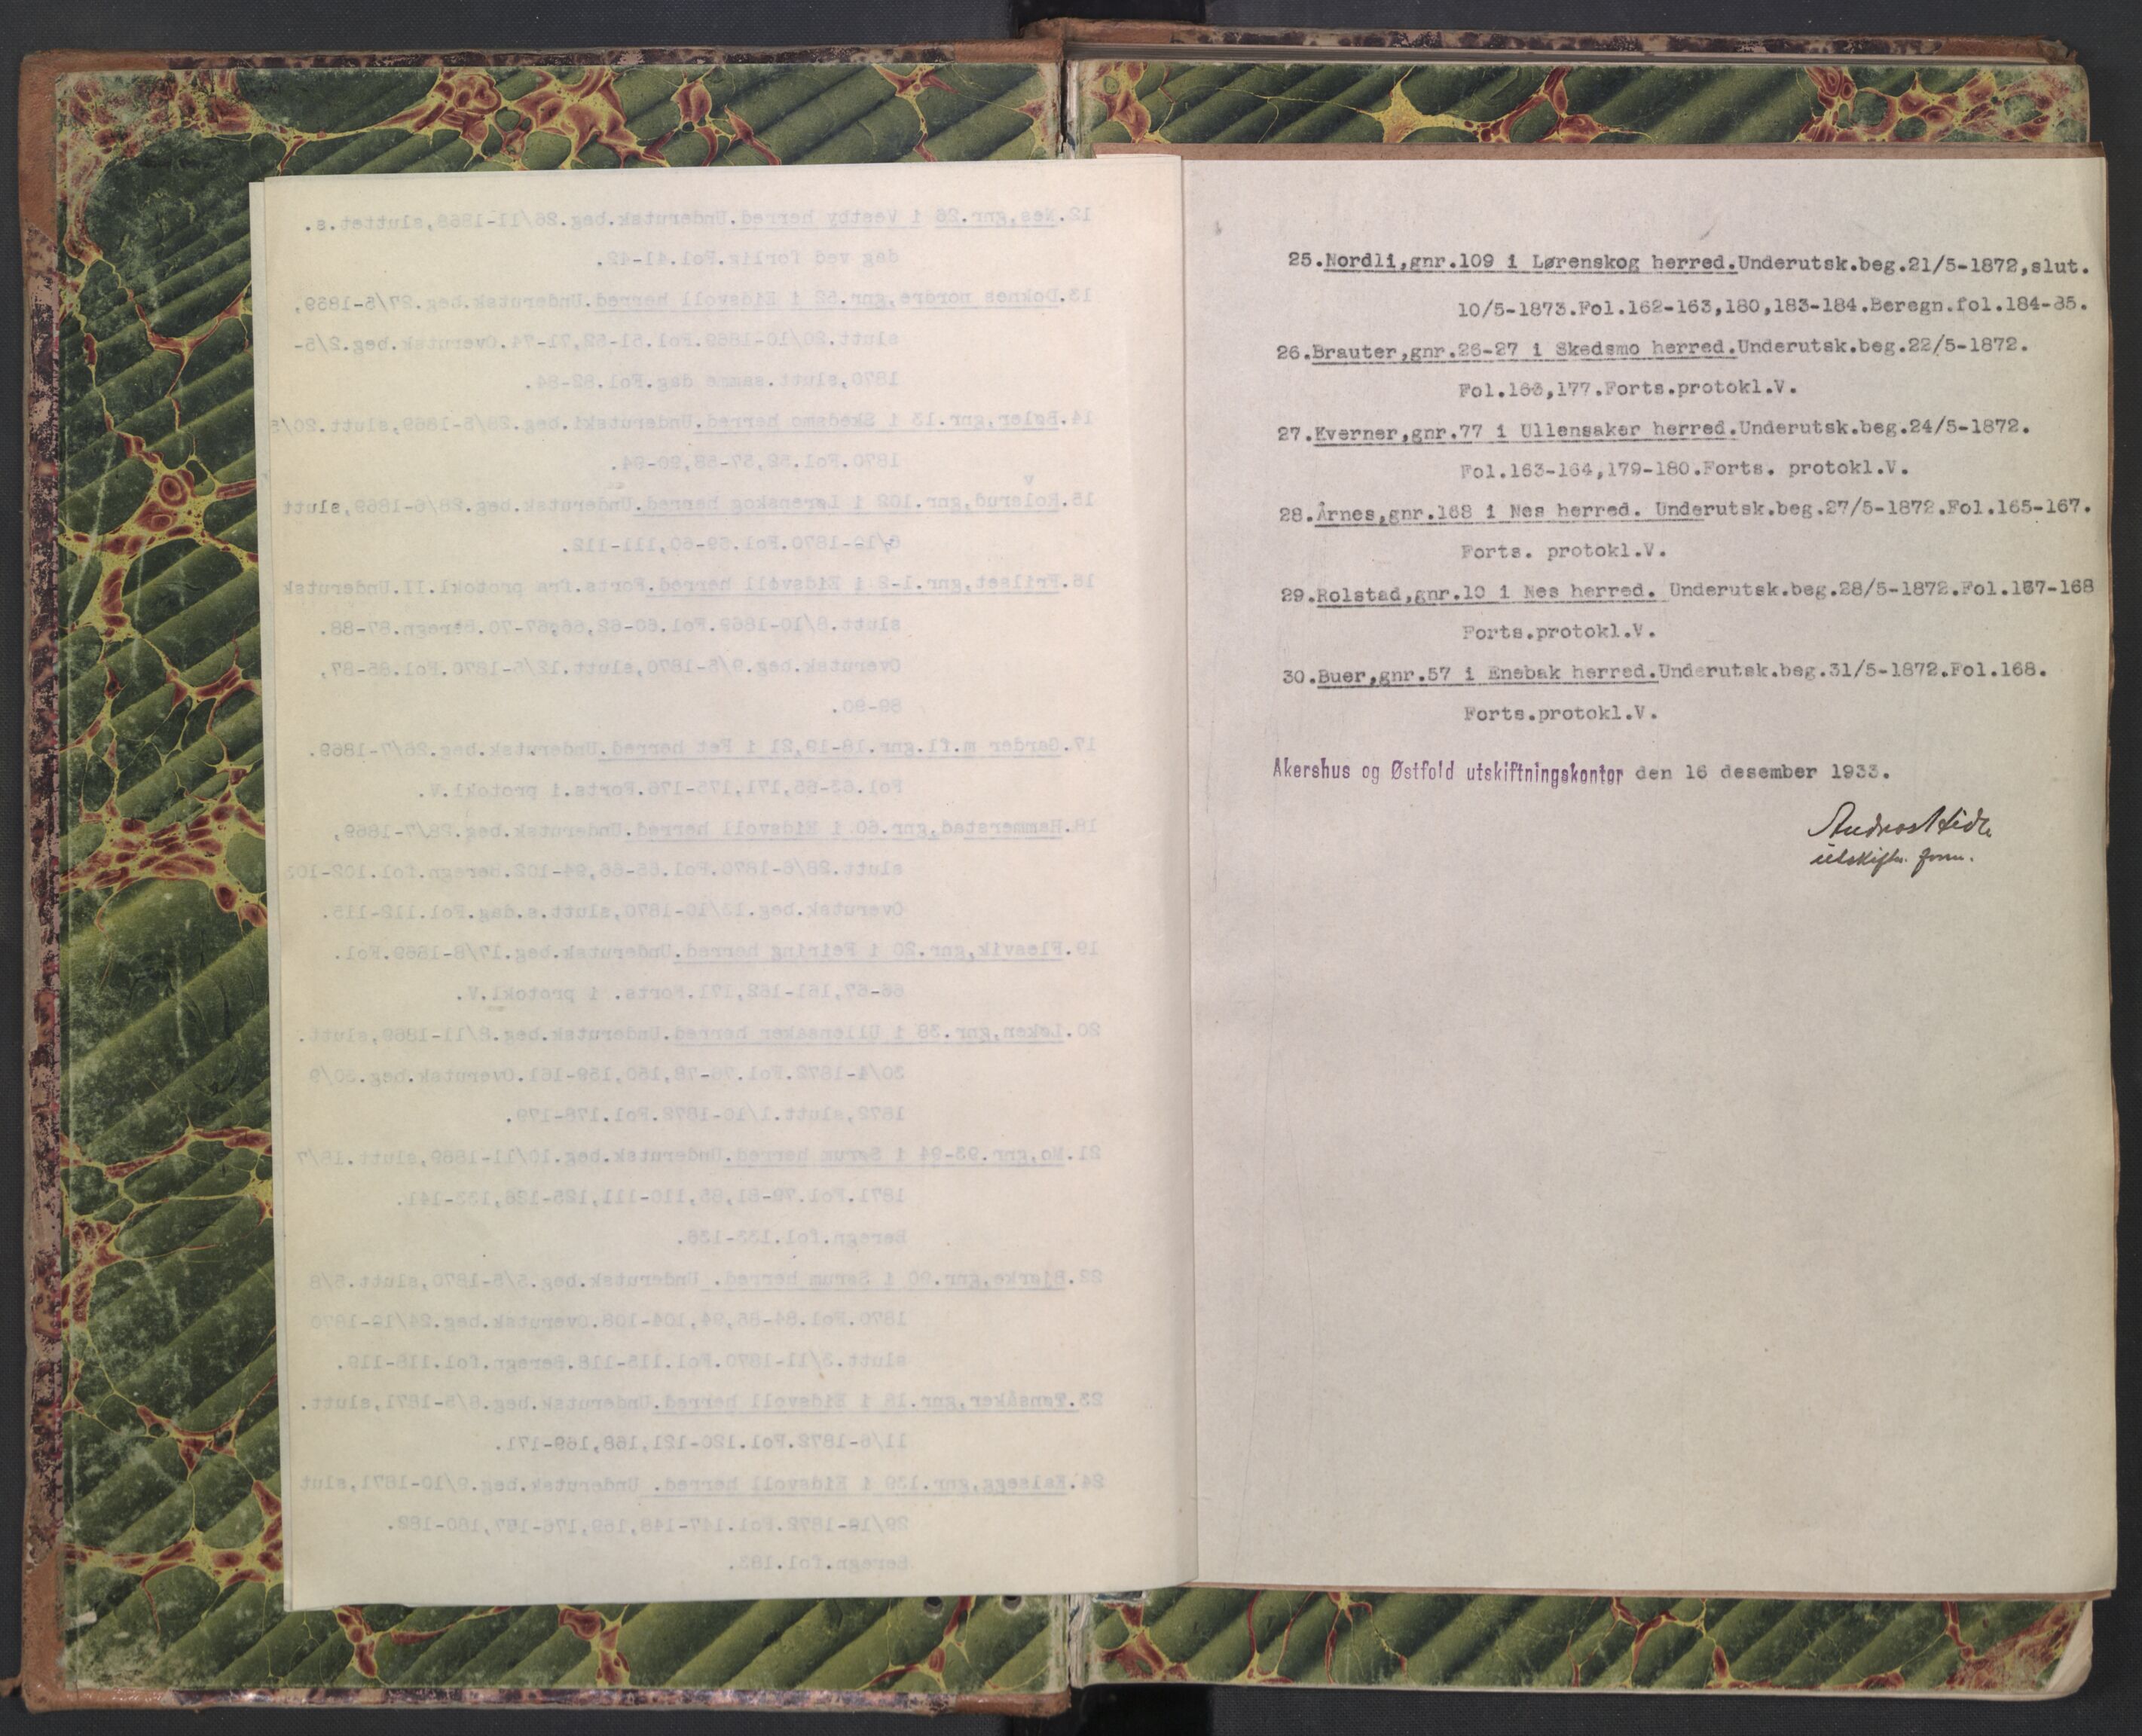 12.Nes,gnr.26 i Vestby herred.Underutsk.beg.26/11-1868,sluttet.s.
dag ved forlig.Fol.41-42.
13.Doknes nordre,gnr.52 i Eidsvoll herred.Underutsk.beg.27/5-1869,
slutt.20/10-1869.Fol.51-52,71-74.Overutsk.beg.2/5-
1870,slutt.samme dag.Fol.82-84.
14.Bøler,gnr.13 i Skedsmo herred.Underutski.beg.28/5-1869,slutt.20/5
1870.Fol.52,57-58,90-94.
15.Rolerud,gnr.102 i Lørenskog herred.Underutsk.beg.28/6-1869,slutt
6/10-1870.Fol.59-60,111-112.
16.Frilset,gnr.1-2 i Eidsvoll herred.Forts.fra protokl.II.Underutsk
slutt.8/10-1869.Fol.60-62,66,67-70.Beregn.87-88.
Overutsk.beg.9/5-1870,slutt.12/5-1870.Fol.85-87,
89-90.
17.Garder m.fl.gnr.18-19,21 i Fet herred.Underutsk.beg.26/7-1869.
Fol.63-65,171,175-176.Forts.i protokl.V.
18.Hammerstad,gnr.60 i Eidsvoll herred.Underutsk.beg.28/7-1869,
slutt.28/6-1870.Fol.65-66,94-102.Beregn.fol.102-103
Overutsk.beg.13/10-1870,slutt.s.dag.Fol.112-115.
19.Flesvik,gnr.20 i Feiring herred.Underutsk.beg.17/8-1869.Fol.
66-67,161-162,171.Forts. i protokl.V.
20.Løken,gnr.38 i Ullensaker herred.Underutsk.beg.8/11-1869,slutt.
30/4-1872.Fol.76-78,150,159-161.Overutsk.beg.30/9
1872,slutt.1/10-1872.Fol.178-179.
21.Mo,gnr.93-94 i Sørum herred.Underutsk.beg.10/11-1869,slutt.18/7
1871.Fol.79-81,85,110-111,125-128,133-141.
Beregn.fol.133-136.
22.Bjørke,gnr.90 i Sørum herred. Underutsk.beg.5/5-1870,slutt.5/8
1870.Fol.84-85,94,104-108.Overutsk.beg.24/10-1870
slutt.3/11-1870.Fol.115-118.Beregn.fol.118-119.
23.Tønsåker,gnr.16 i Eidsvoll herred.Underutsk.beg.8/5-1871,slutt.
11/6-1872.Fol.120-121,168,169-171.
24.Kalsegg,gnr.139 i Eidsvoll herred. Underutsk.beg.9/10-1871,slut
29/10-1872.Fol.147-148,169,176-197,180-182.
Beregn.fol.183.
25.Nordli,gnr.109 i Lørenskog herred.Underutsk.beg.21/5-1872,slut.
10/5-1873.Fol.162-163,180,183-184.Beregn.fol.184-85.
26.Brauter,gnr.26-27 i Skedsmo herred.Underutsk.beg.22/5-1872.
Fol.163,177.Forts.protokl.V.
27.Kverner,gnr.77 i Ullensaker herred.Underutsk.beg.24/5-1872.
Fol.163-164,179-180.Forts. protokl.V.
28.Årnes,gnr.168 i Nes herred. Underutsk.beg.27/5-1872.Fol.165-167.
Forts. protokl.V.
29.Rolstad,gnr.10 i Nes herred. Underutsk.beg.28/5-1872.Fol.167-168
Forts.protokl.V.
30.Buer,gnr.57 i Enebak herred.Underutsk.beg.31/5-1872.Fol.168.
Forts.protokl.V.
Akershus og Østfold utskiftningskontor den 16 desember 1933.
utskiftn. form.